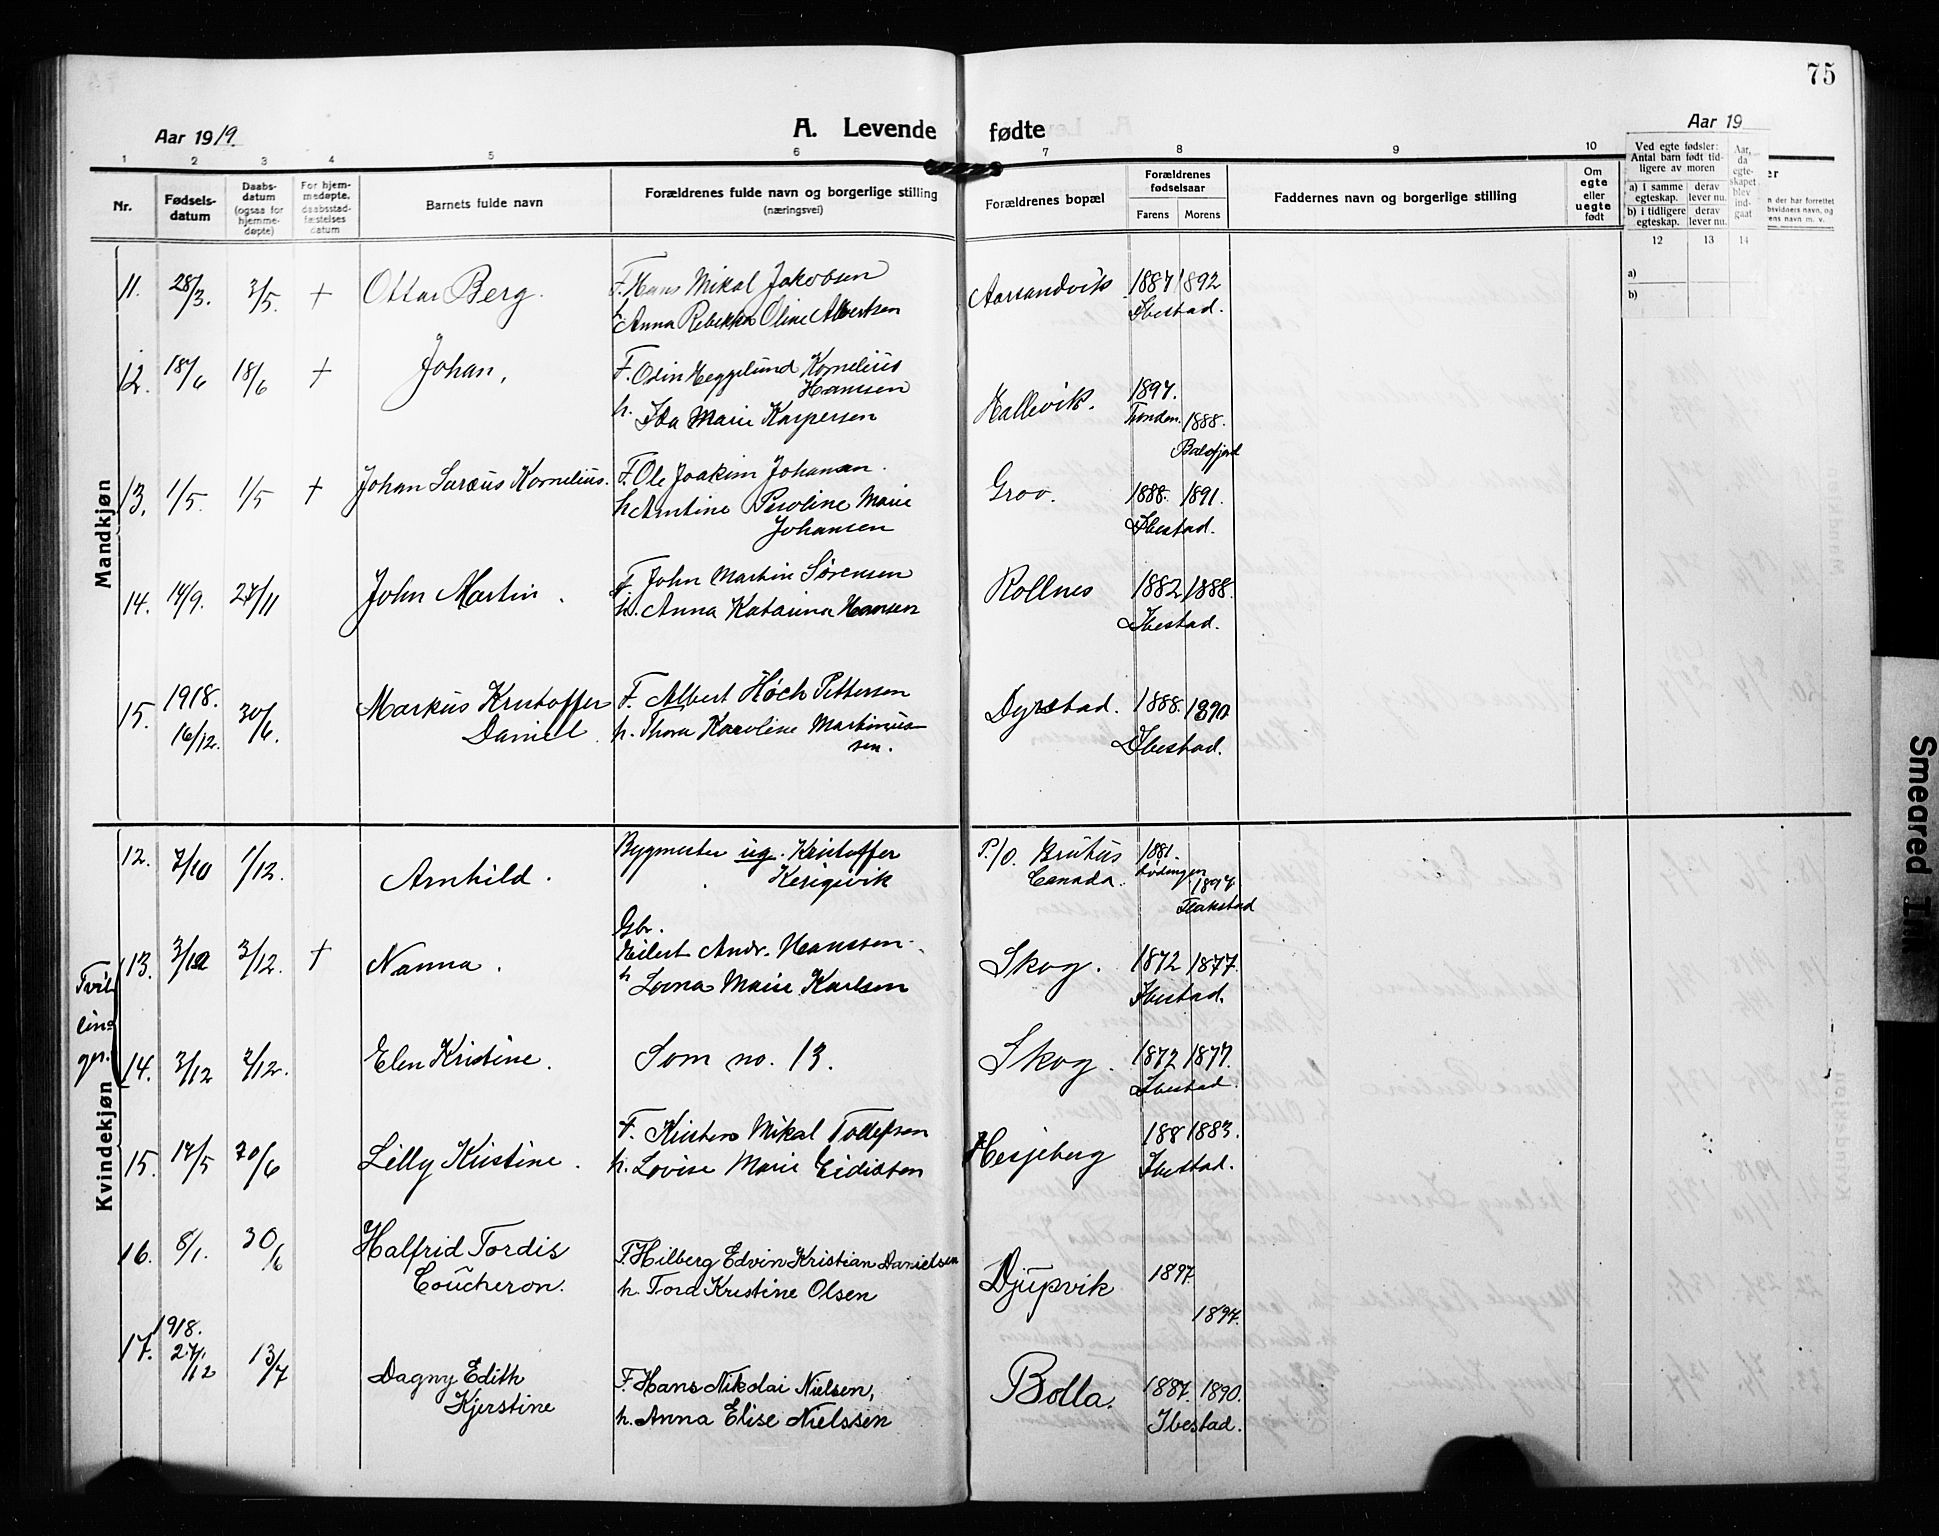 75
Aar 1919.
A. Levende fødte
Aar 19
1 2 3 4 5 6 7 8 9 10
Nr.
Fødsels-
datum
Daabs-
datum
(ogsaa for
hjemme-
døpte)
For hjem-
medøpte,
daabsstad-
fæstelses
datum
Barnets fulde navn
Forældrenes fulde navn og borgerlige stilling
(næringsvei)
Forældrenes bopæl
Forældrenes
fødselsaar
Farens Morens
Faddernes navn og borgerlige stilling
Om
egte
eller
uegte
født
Ved egte fødsler:
Antal barn født tid-
ligere av moren
a) i samme
egteskap.
derav
lever nu.
b) i tidligere
egteskap.
derav
lever nu.
Aar,
da
egte-
skapet
blev
ind-
gaat
12 13 14
a)
b)
Mandkjøn
11. 28/3. 3/5. + Ottar Berg.
F. Hans Mikal Jakobsen
h. Anna Rebekka Oline Albertsen
Aarsandvik 1887 1892
Ibestad.
12. 18/6 18/6 + Johan,
F. Odin Heggelund Kornelius
Hansen
h. Ida Marie Kaspersen
Hallevik. 1897.
Tronden. 1888.
Balsfjord
13. 1/5. 1/5 + Johan Saræus Kornelius.
F. Ole Joakim Johansen.
h. Arntine Peroline Marie
Johansen
Grov. 1888. 1891.
Ibestad.
14. 14/9. 27/11 John Martin.
F. John Martin Sørensen
h. Anna Katarina Hansen
Rollnes 1882 1888.
Ibestad.
15. 1918.
16/12. 30/6. Markus Kristoffer
Daniel.
F. Albert Høch Pettersen
h. Thora Karoline Martinus-
sen.
Dyrstad. 1888. 1890
Ibestad.
Kvindekjøn
12. 7/10 1/12. Arnhild.
Bygmester ug. Kristoffer
P./O. Brutus
Canada.
1881.
Lødingen
1897
Flakstad
Tvil-
lin-
ger.
13. 3/12 3/12. + Nanna.
Gbr.
Eilert Andr. Hanssen.
h. Lorna Marie Karlsen
Skog. 1872 1877.
Ibestad.
14. 3/12 3/12. Elen Kristine.
Som no. 13.
Skog. 1872 1877.
Ibestad.
15. 14/5 20/6 Lilly Kristine.
F. Kristen Mikal Tollefsen
h. Lovise Marie Eidissen
Hesjeberg 188 1883.
Ibestad.
16. 8/1. 30/6 Halfrid Tordis
Coucheron.
F. Hilberg Edvin Kristian Danielsen
h. Tora Kristine Olsen
Djupvik 1897
1897.
17. 1918.
27/12 13/7 Dagny Edith
Kjerstine
F. Hans Nikolai Nielsen,
h. Anna Elise Nielssen
Bolla. 1887. 1890.
Ibestad.
Smeared Ink